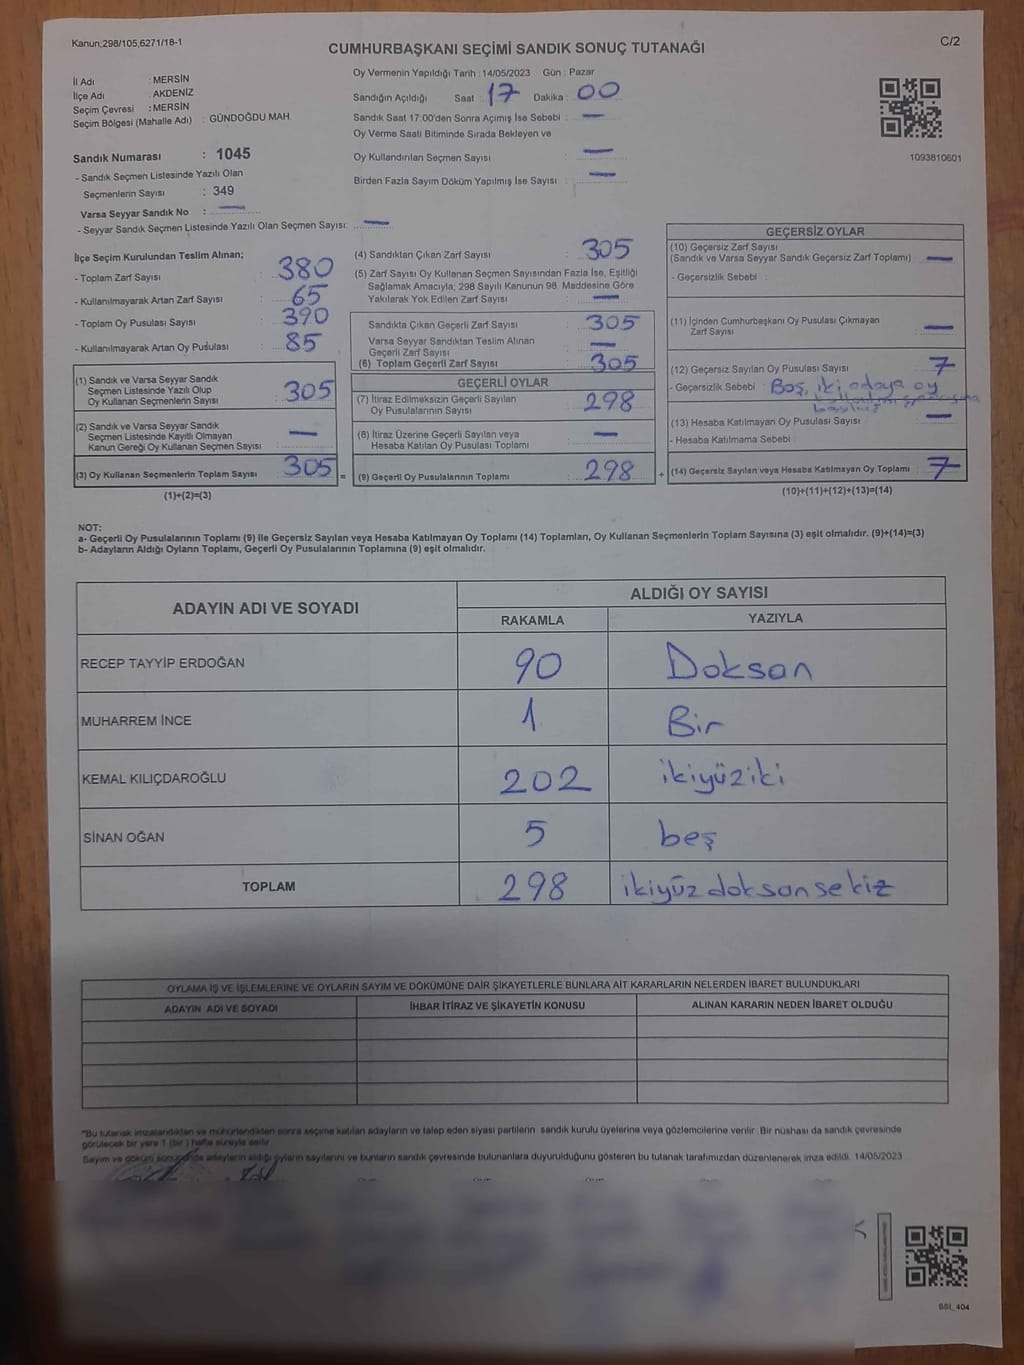 Kanun;298/105,6271/18-1
C/2
CUMHURBAŞKANI SEÇİMİ SANDIK SONUÇ TUTANAĞI
İl Adı : MERSİN
İlçe Adı : AKDENİZ
Seçim Çevresi : MERSİN
Seçim Bölgesi (Mahalle Adı) : GÜNDOĞDU MAH.
Sandık Numarası : 1045
- Sandık Seçmen Listesinde Yazılı Olan
Seçmenlerin Sayısı : 349
Varsa Seyyar Sandık No : —
- Seyyar Sandık Seçmen Listesinde Yazılı Olan Seçmen Sayısı: —
Oy Vermenin Yapıldığı Tarih : 14/05/2023 Gün : Pazar
Sandığın Açıldığı Saat : 17 Dakika : 00
Sandık Saat 17:00'den Sonra Açımış İse Sebebi : —
Oy Verme Saati Bitiminde Sırada Bekleyen ve
Oy Kullandırılan Seçmen Sayısı : —
Birden Fazla Sayım Döküm Yapılmış İse Sayısı : —
1093810601
İlçe Seçim Kurulundan Teslim Alınan;
- Toplam Zarf Sayısı : 380
- Kullanılmayarak Artan Zarf Sayısı : 65
- Toplam Oy Pusulası Sayısı : 390
- Kullanılmayarak Artan Oy Pusulası : 85
(1) Sandık ve Varsa Seyyar Sandık
Seçmen Listesinde Yazılı Olup
Oy Kullanan Seçmenlerin Sayısı : 305
(2) Sandık ve Varsa Seyyar Sandık
Seçmen Listesinde Kayıtlı Olmayan
Kanun Gereği Oy Kullanan Seçmen Sayısı : —
(3) Oy Kullanan Seçmenlerin Toplam Sayısı : 305 =
(1)+(2)=(3)
(4) Sandıktan Çıkan Zarf Sayısı : 305
(5) Zarf Sayısı Oy Kullanan Seçmen Sayısından Fazla İse, Eşitliği
Sağlamak Amacıyla; 298 Sayılı Kanunun 98. Maddesine Göre
Yakılarak Yok Edilen Zarf Sayısı : —
Sandıkta Çıkan Geçerli Zarf Sayısı : 305
Varsa Seyyar Sandıktan Teslim Alınan
Geçerli Zarf Sayısı : —
(6) Toplam Geçerli Zarf Sayısı : 305
GEÇERLİ OYLAR
(7) İtiraz Edilmeksizin Geçerli Sayılan
Oy Pusulalarının Sayısı : 298
(8) İtiraz Üzerine Geçerli Sayılan veya
Hesaba Katılan Oy Pusulası Toplamı : —
(9) Geçerli Oy Pusulalarının Toplamı : 298 +
GEÇERSİZ OYLAR
(10) Geçersiz Zarf Sayısı
(Sandık ve Varsa Seyyar Sandık Geçersiz Zarf Toplamı) : —
- Geçersizlik Sebebi :
(11) İçinden Cumhurbaşkanı Oy Pusulası Çıkmayan
Zarf Sayısı : —
(12) Geçersiz Sayılan Oy Pusulası Sayısı : 7
- Geçersizlik Sebebi : Boş, iki adaya oy
(13) Hesaba Katılmayan Oy Pusulası Sayısı : —
- Hesaba Katılmama Sebebi :
(14) Geçersiz Sayılan veya Hesaba Katılmayan Oy Toplamı : 7
(10)+(11)+(12)+(13)=(14)
NOT:
a- Geçerli Oy Pusulalarının Toplamı (9) ile Geçersiz Sayılan veya Hesaba Katılmayan Oy Toplamı (14) Toplamları, Oy Kullanan Seçmenlerin Toplam Sayısına (3) eşit olmalıdır. (9)+(14)=(3)
b- Adayların Aldığı Oyların Toplamı, Geçerli Oy Pusulalarının Toplamına (9) eşit olmalıdır.
ADAYIN ADI VE SOYADI ALDIĞI OY SAYISI
RAKAMLA YAZIYLA
RECEP TAYYİP ERDOĞAN 90 Doksan
MUHARREM İNCE 1 Bir
KEMAL KILIÇDAROĞLU 202 ikiyüziki
SİNAN OĞAN 5 beş
TOPLAM 298 ikiyüz doksan sekiz
OYLAMA İŞ VE İŞLEMLERİNE VE OYLARIN SAYIM VE DÖKÜMÜNE DAİR ŞİKAYETLERLE BUNLARA AİT KARARLARIN NELERDEN İBARET BULUNDUKLARI
ADAYIN ADI VE SOYADI İHBAR İTİRAZ VE ŞİKAYETİN KONUSU ALINAN KARARIN NEDEN İBARET OLDUĞU
"Bu tutanak imzalandıktan ve mühürlendikten sonra seçime katılan adayların ve talep eden siyasi partilerin sandık kurulu üyelerine veya gözlemcilerine verilir. Bir nüshası da sandık çevresinde
görülecek bir yere 1 (bir ) hafta süreyle asılır.
Sayım ve döküm sonucunda adayların aldığı oyların sayılarını ve bunların sandık çevresinde bulunanlara duyurulduğunu gösteren bu tutanak tarafımızdan düzenlenerek imza edildi. 14/05/2023
BSI_404